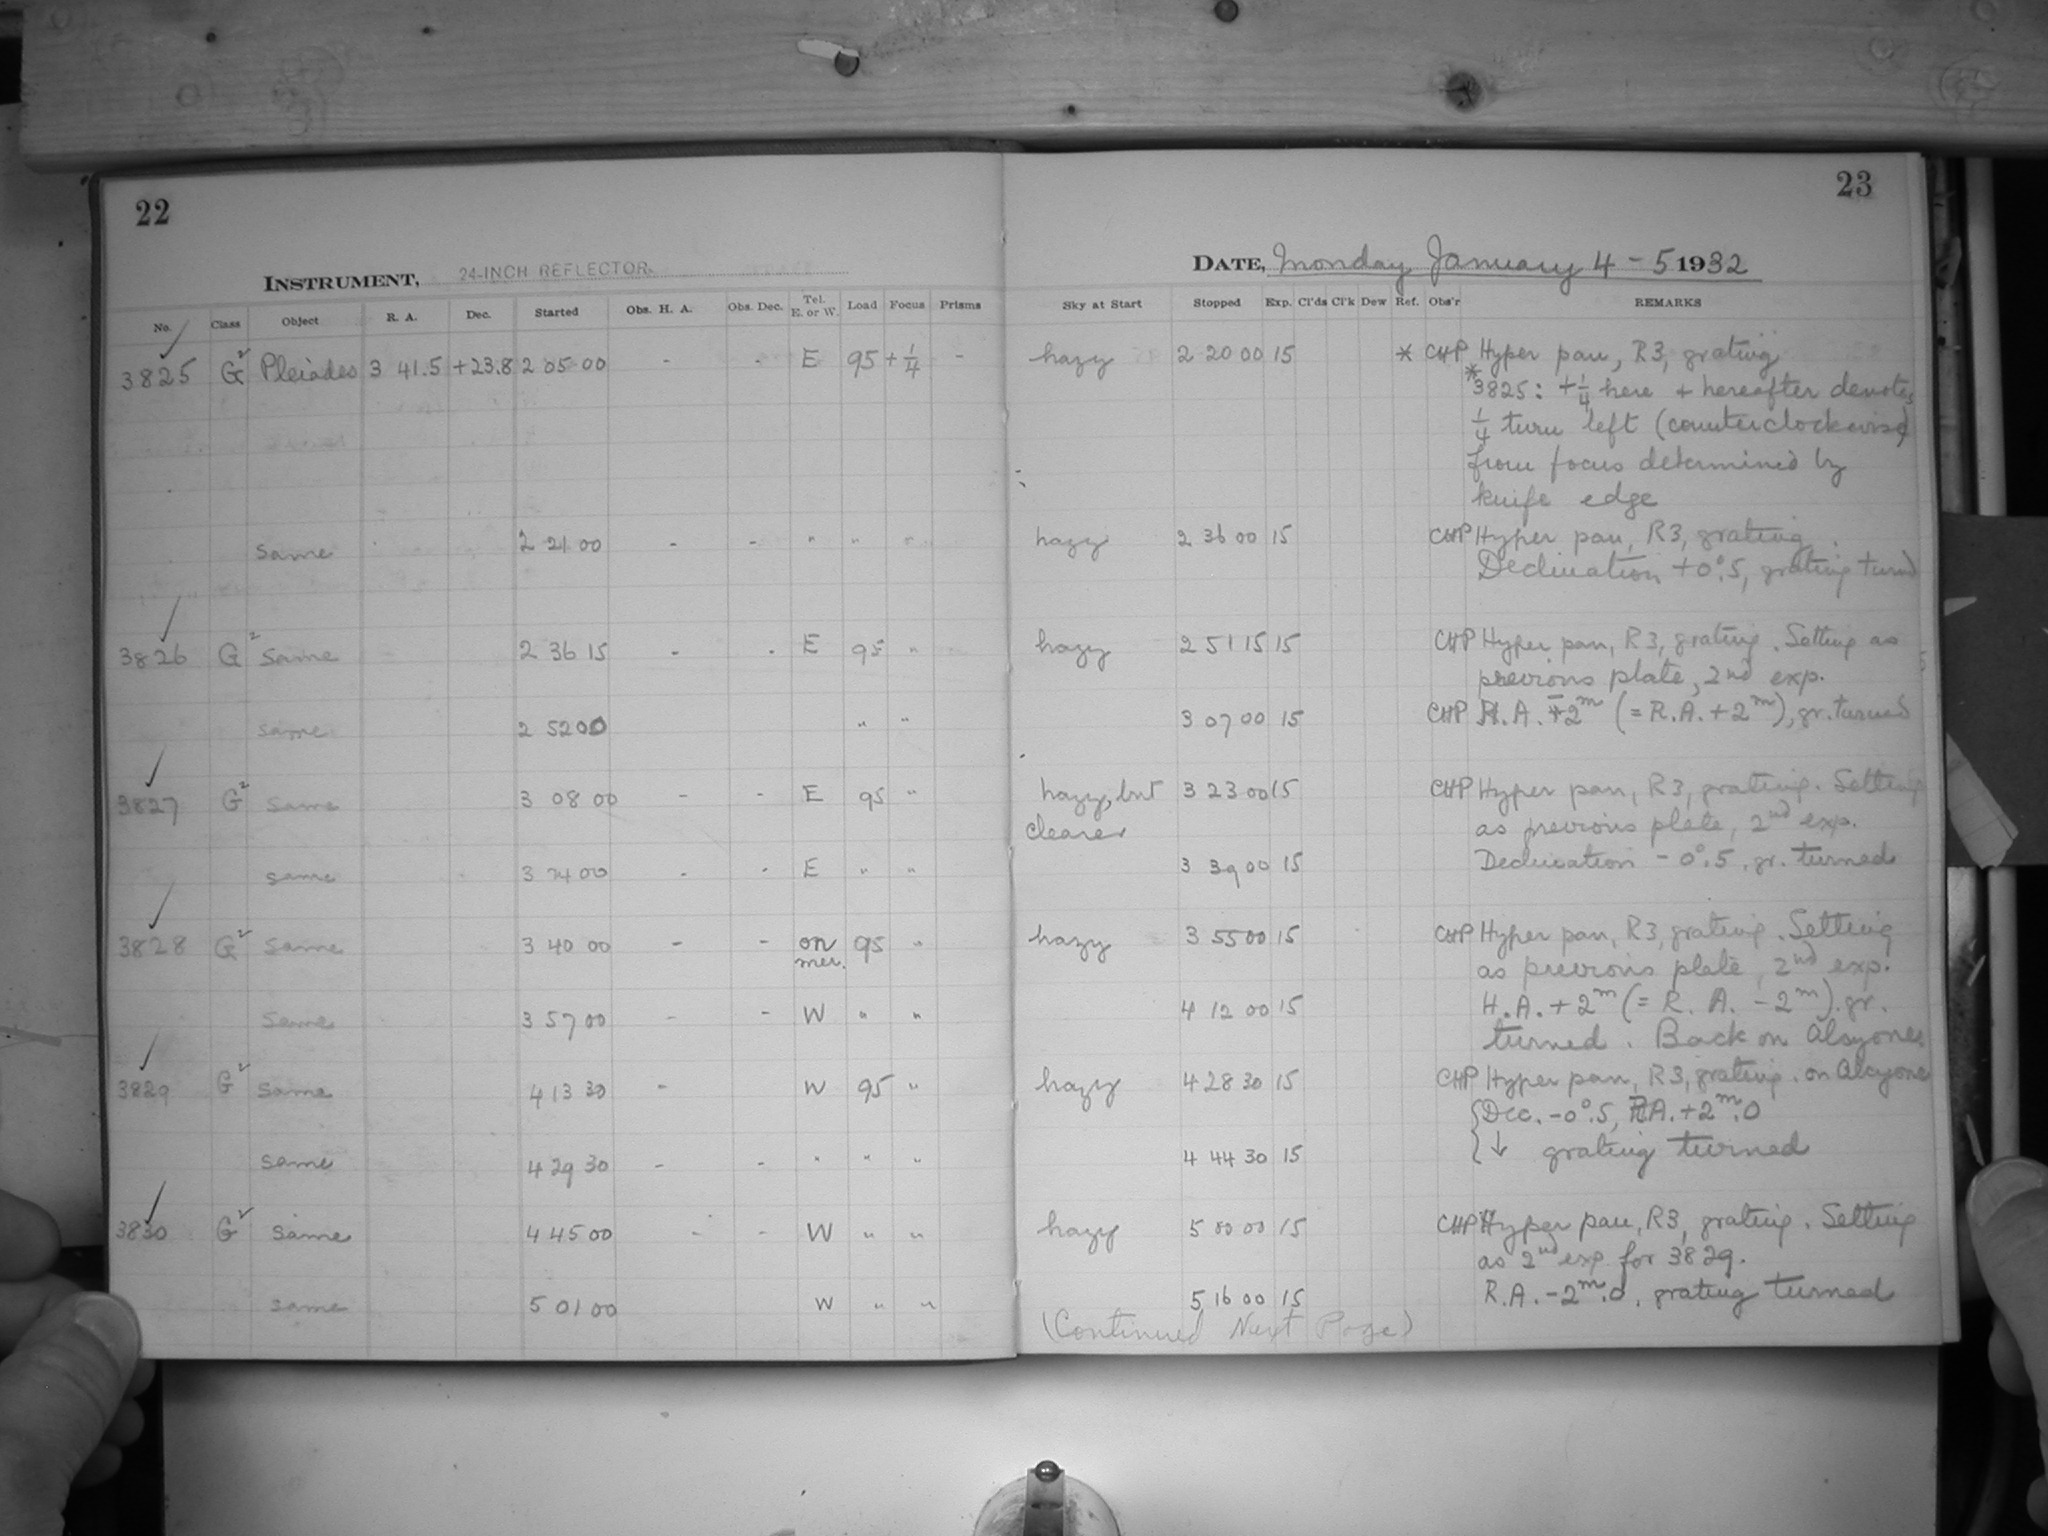 22
INSTRUMENT, 24-INCH REFLECTOR.
No. Class Object R. A. Dec. Started Obs. H. A. Obs. Dec. Tel. E. or W. Load Focus Prisms
3825 G² Pleiades 3 41.5 +23.8 2 05 00 - - E 95 +1/4 -
same 2 21 00 - - " " "
3826 G² same 2 36 15 - - E 95 "
same 2 52 00 " "
3827 G² same 3 08 00 - - E 95 "
same 3 24 00 - - E " "
3828 G² same 3 40 00 - - on mer. 95 "
same 3 57 00 - - W " "
3829 G² same 4 13 30 - W 95 "
same 4 29 30 - - " " "
3830 G² same 4 45 00 - - W " "
same 5 01 00 W " "
23
DATE, Monday January 4-5 1932
Sky at Start Stopped Exp. Cl'ds Cl'k Dew Ref. Obs'r REMARKS
hazy 2 20 00 15 * CHP Hyper pan, R3, grating
* 3825: +1/4 here + hereafter denotes
1/4 turn left (counterclockwise)
from focus determined by
knife edge
hazy 2 36 00 15 CHP Hyper pan, R3, grating.
Declination +0°.5, grating turned
hazy 2 51 15 15 CHP Hyper pan, R3, grating. Setting as
previous plate, 2nd exp.
3 07 00 15 CHP H.A. -2m (= R.A. +2m), gr. turned
hazy, but 3 23 00 15 CHP Hyper pan, R3, grating. Setting
clearer as previous plate, 2nd exp.
3 39 00 15 Declination -0°.5, gr. turned
hazy 3 55 00 15 CHP Hyper pan, R3, grating. Setting
as previous plate, 2nd exp.
4 12 00 15 H.A. +2m (= R. A. -2m). gr.
turned. Back on Alcyone.
hazy 4 28 30 15 CHP Hyper pan, R3, grating. on Alcyone
{Dec. -0°.5, R.A. +2m.0
4 44 30 15 ↓ grating turned
hazy 5 00 00 15 CHP Hyper pan, R3, grating. Setting
as 2nd exp for 3829.
5 16 00 15 R.A. -2m.0, grating turned
(Continued Next Page)